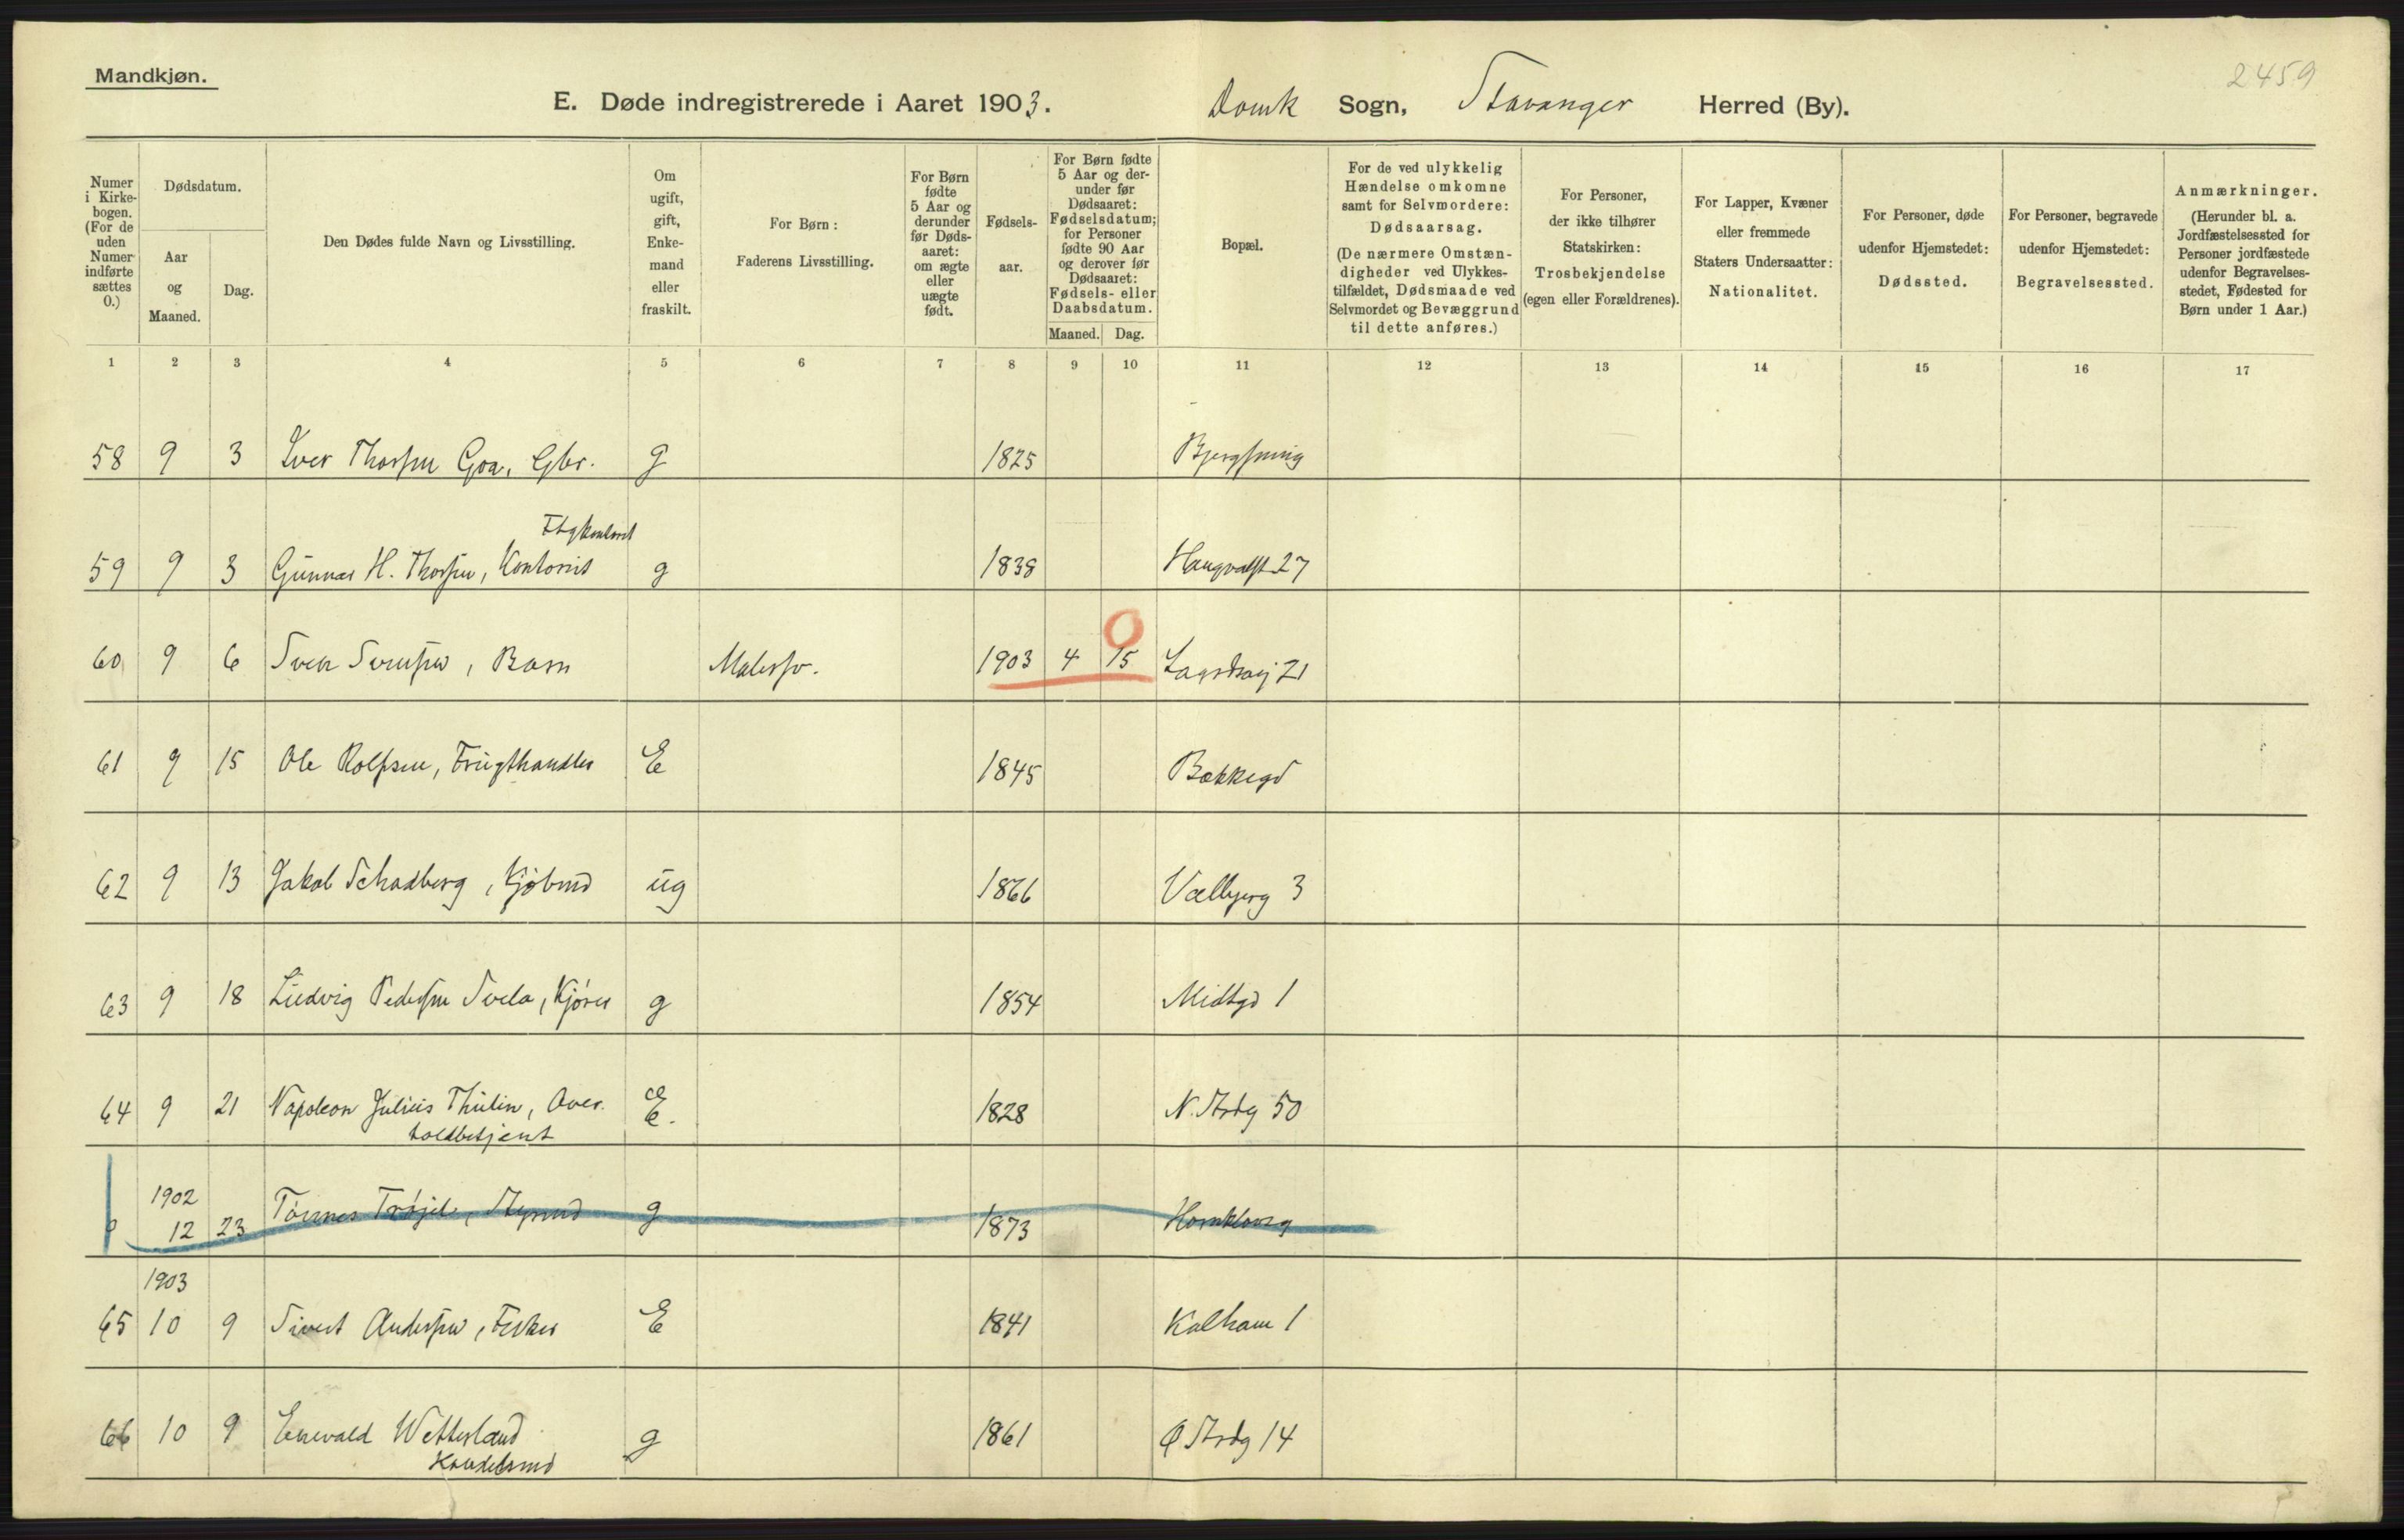 Mandkjøn.
2459
E. Døde indregistrerede i Aaret 1903. Domk Sogn, Stavanger Herred (By).
Numer i Kirkebogen. (For de uden Numer indførte sættes 0.)
Dødsdatum.
Aar og Maaned.
Dag.
Den Dødes fulde Navn og Livsstilling.
Om ugift, gift, Enkemand eller fraskilt.
For Børn: Faderens Livsstilling.
For Børn fødte 5 Aar og derunder før Dødsaaret: om ægte eller uægte født.
Fødselsaar.
For Børn fødte 5 Aar og derunder før Dødsaaret: Fødselsdatum; for Personer fødte 90 Aar og derover før Dødsaaret: Fødsels- eller Daabsdatum.
Maaned. Dag.
Bopæl.
For de ved ulykkelig Hændelse omkomne samt for Selvmordere: Dødsaarsag. (De nærmere Omstændigheder ved Ulykkestilfældet, Dødsmaade ved Selvmordet og Bevæggrund til dette anføres.)
For Personer, der ikke tilhører Statskirken: Trosbekjendelse (egen eller Forældrenes).
For Lapper, Kvæner eller fremmede Staters Undersaatter: Nationalitet.
For Personer, døde udenfor Hjemstedet: Dødssted.
For Personer, begravede udenfor Hjemstedet: Begravelsessted.
Anmærkninger. (Herunder bl. a. Jordfæstelsessted for Personer jordfæstede udenfor Begravelsesstedet, Fødested for Børn under 1 Aar.)
1 2 3 4 5 6 7 8 9 10 11 12 13 14 15 16 17
58 9 3 Iver Thorsen Goa, Gbr. g 1825
59 9 3 Gunnar H. Thorsen, Kontorist g 1838 Haugvaldst 27
60 9 6 Sven Svensen, Barn Malersv. 1903 4 15 0 21
61 9 15 Ole Rolfsen, Frugthandler E 1845 Bakkegd
62 9 13 Jakob Schadberg, Kjøbmd ug 1866 Valbjerg 3
63 9 18 Ludvig Pedersen Svela, Kjører g 1854 Midtgd 1
64 9 21 Napoleon Julius Thulin, Over.
toldbetjent E. 1828 N. Strdg 50
1902
0 12 23 Tønnes Trøjel, Styrmd g 1873 Hornklovg
1903
65 10 9 Sivert Andersen, Fisker E 1841 Kalham 1
66 10 9 Enevald Wetterland
Handelsmd g 1861 Ø Strdg 14